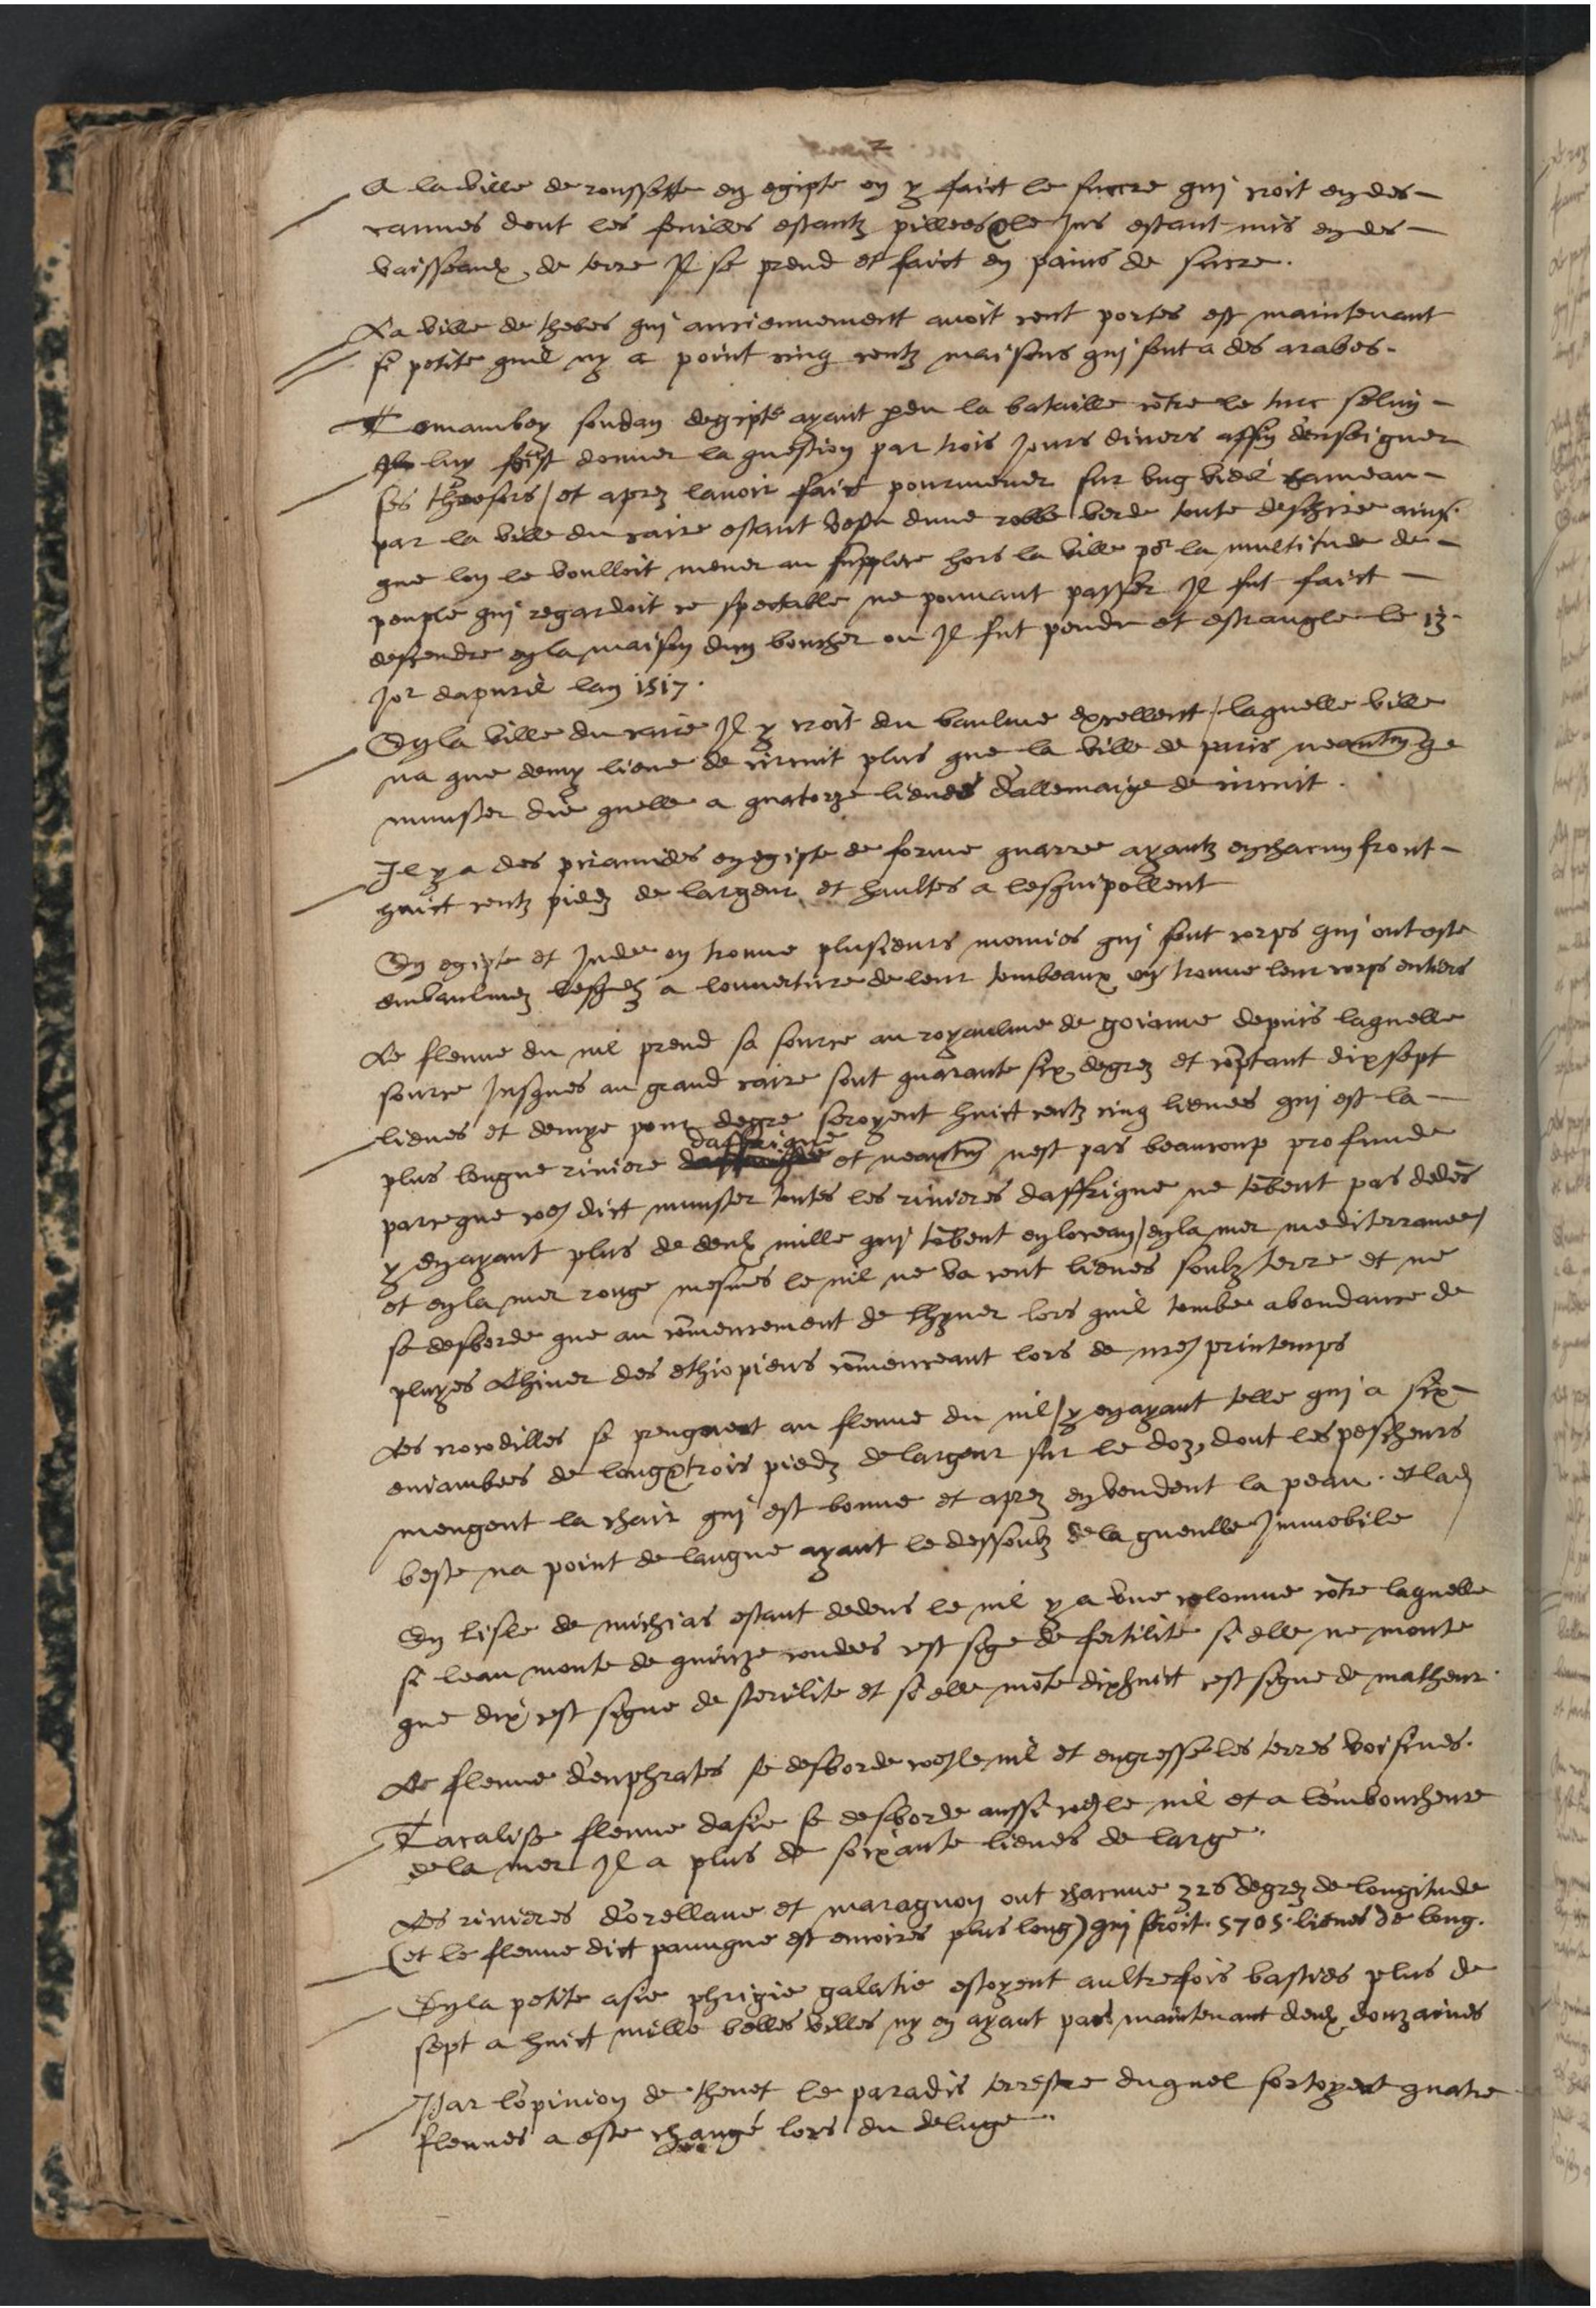 A la ville de roussette en egipte on y faict le succre qui croit en des
cannes dont les feuilles estantz pillees & le Jus estant mis en des
vaisseaux de terre Il se prend et faict en pains de sucre.
La ville de thebes qui anciennement auoit cent portes est maintenant
si petite quil ny a point cinq centz maisons qui sont a des arabes.
Tomambey soudan degipte ayant pdu la bataille cōtre le turc selim
luy feist donner la question par trois Jours diuers affin denseigner
ses thresors / et aprez lauoir faict pourmener sur vng vieil cameau
par la ville du caire estant vestu dune robbe verde toute deschiree ainsi
que lon le voulloit mener au supplice hors la ville pour la multitude de
peuple qui regardoit ce spectable ne pouuant passer Il fut faict
descendre en la maison dun boucher ou Il fut pendu et estrangle le 13
Jor dapuril lan 1517.
En la ville du caire Il y croit du baulme excellent / laquelle ville
na que demy lieue de circuit plus que la ville de paris neantmoins que
munster die quelle a quatorze lieues dallemaigne de circuit.
Il y a des piramides en egipte de forme quarre ayantz en chacun front
huict centz piedz de largeur et haultes a lesquipollent
En egipte et Inde on trouue plusieurs momies qui sont corps qui ont este
embaulmez lesquelz a louuerture de leur tombeaux on trouue leur corps entiers
Le fleuue du nil prend sa source au royaulme de goiame depuis laquelle
source Jusques au grand caire sont quarante six degrez et cōptant dix sept
lieues et demye pour degre seroyent huict centz cinq lieues qui est la
plus longue riuiere daffrique et neantm̄ nest pas beaucoup profunde
parceque coe dict munster toutes les riuieres daffrique ne tōbent pas dedēs
y en ayant plus de deux mille qui tōbent en locean / en la mer mediterranee /
et en la mer rouge mesmes le nil ne va cent lieues soubz terre et ne
se desborde que au cōmencement de lhyuer lors quil tombe abondance de
pluyes Lhiuer des ethiopiens cōmenceant lors de nre printemps
Les crocodilles se peuguent au fleuue du nil / y en ayant telle qui a six
eniambees de long & trois piedz de largeur sur le doz, dont les pescheurs
mengent la chair qui est bonne et aprez en vendent la peau. et lad
beste na point de langue ayant le dessoubz de la gueulle Immobile
En lisle de michias estant dedens le nil y a vne colomne cōtre laquelle
si leau monte de quinze coudees cest sige de fertilite si elle ne monte
que dix cest signe de sterilite et si elle mōte dixhuict cest signe de malheur.
Le fleuue deuphrates se desborde coe le nil et engresse les terres voisines.
Tacalise fleuue dasie se desborde aussi coe le nil et a lembouchure
de la mer Il a plus de soixante lieues de large.
Les riuieres dorellane et maragnon ont chacune 326 degrez de longitude
(et le fleuue dict paungue est encoires plus long) qui seroit. 5705. lieues de long.
En la petite asie phrigie galatie estoyent aultrefois basties plus de
sept a huict mille belles villes ny en ayant pas maintenant deux douzaines
Par lopinion de theuet le paradis terrestre duquel sortoyent quatre
fleuues a este changé lors du deluge.